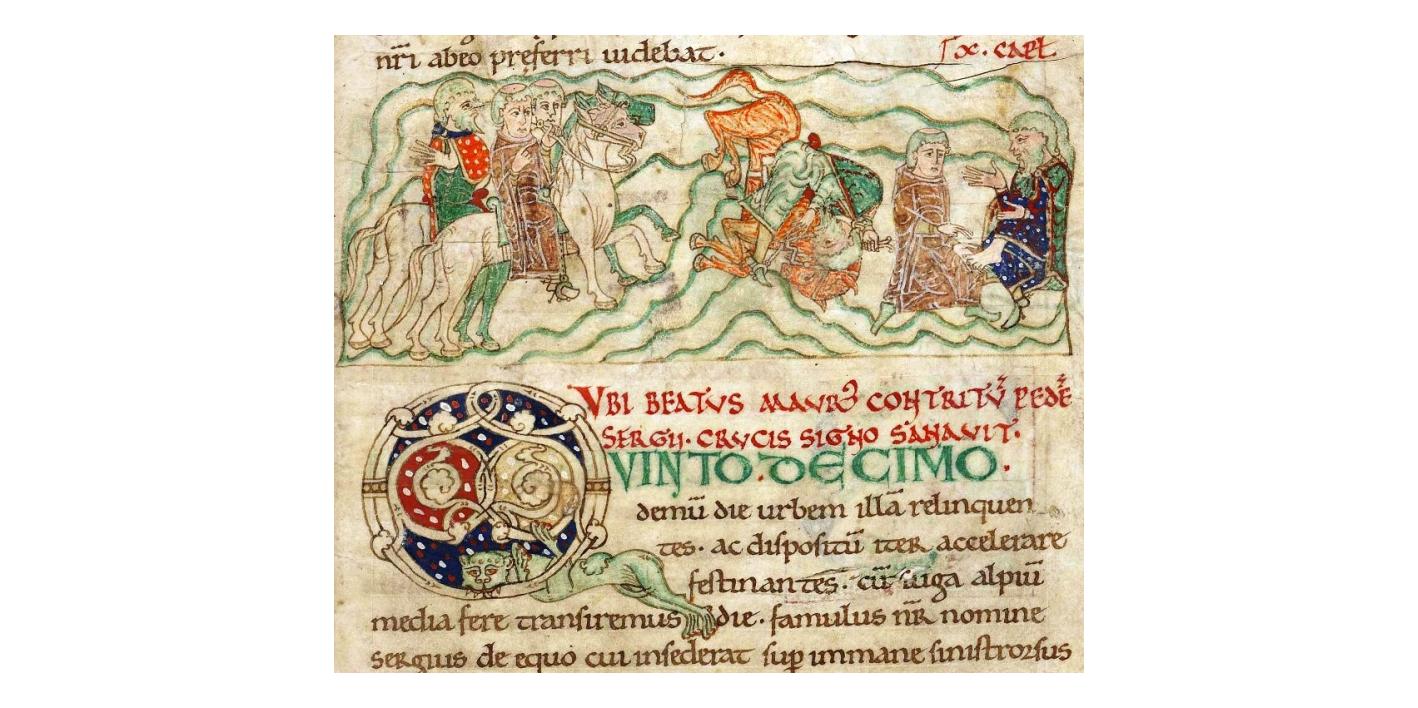 nr̄i abeo preferri uidebat·
x· capł
VBI BEATVS MAVRꝰ CONTRITV̄ PEDĒ
SERGII· CRVCIS SIGNO SANAVIT·
QVINTO·DECIMO·
demū die urbem illā relinquen
tes· ac dispositū iter accelerare
festinantes· cū iuga alpiū
media fere transiremus die· famulus nr̄ nomine
sergius de equo cui insederat sup̱ immane sinistrorsus